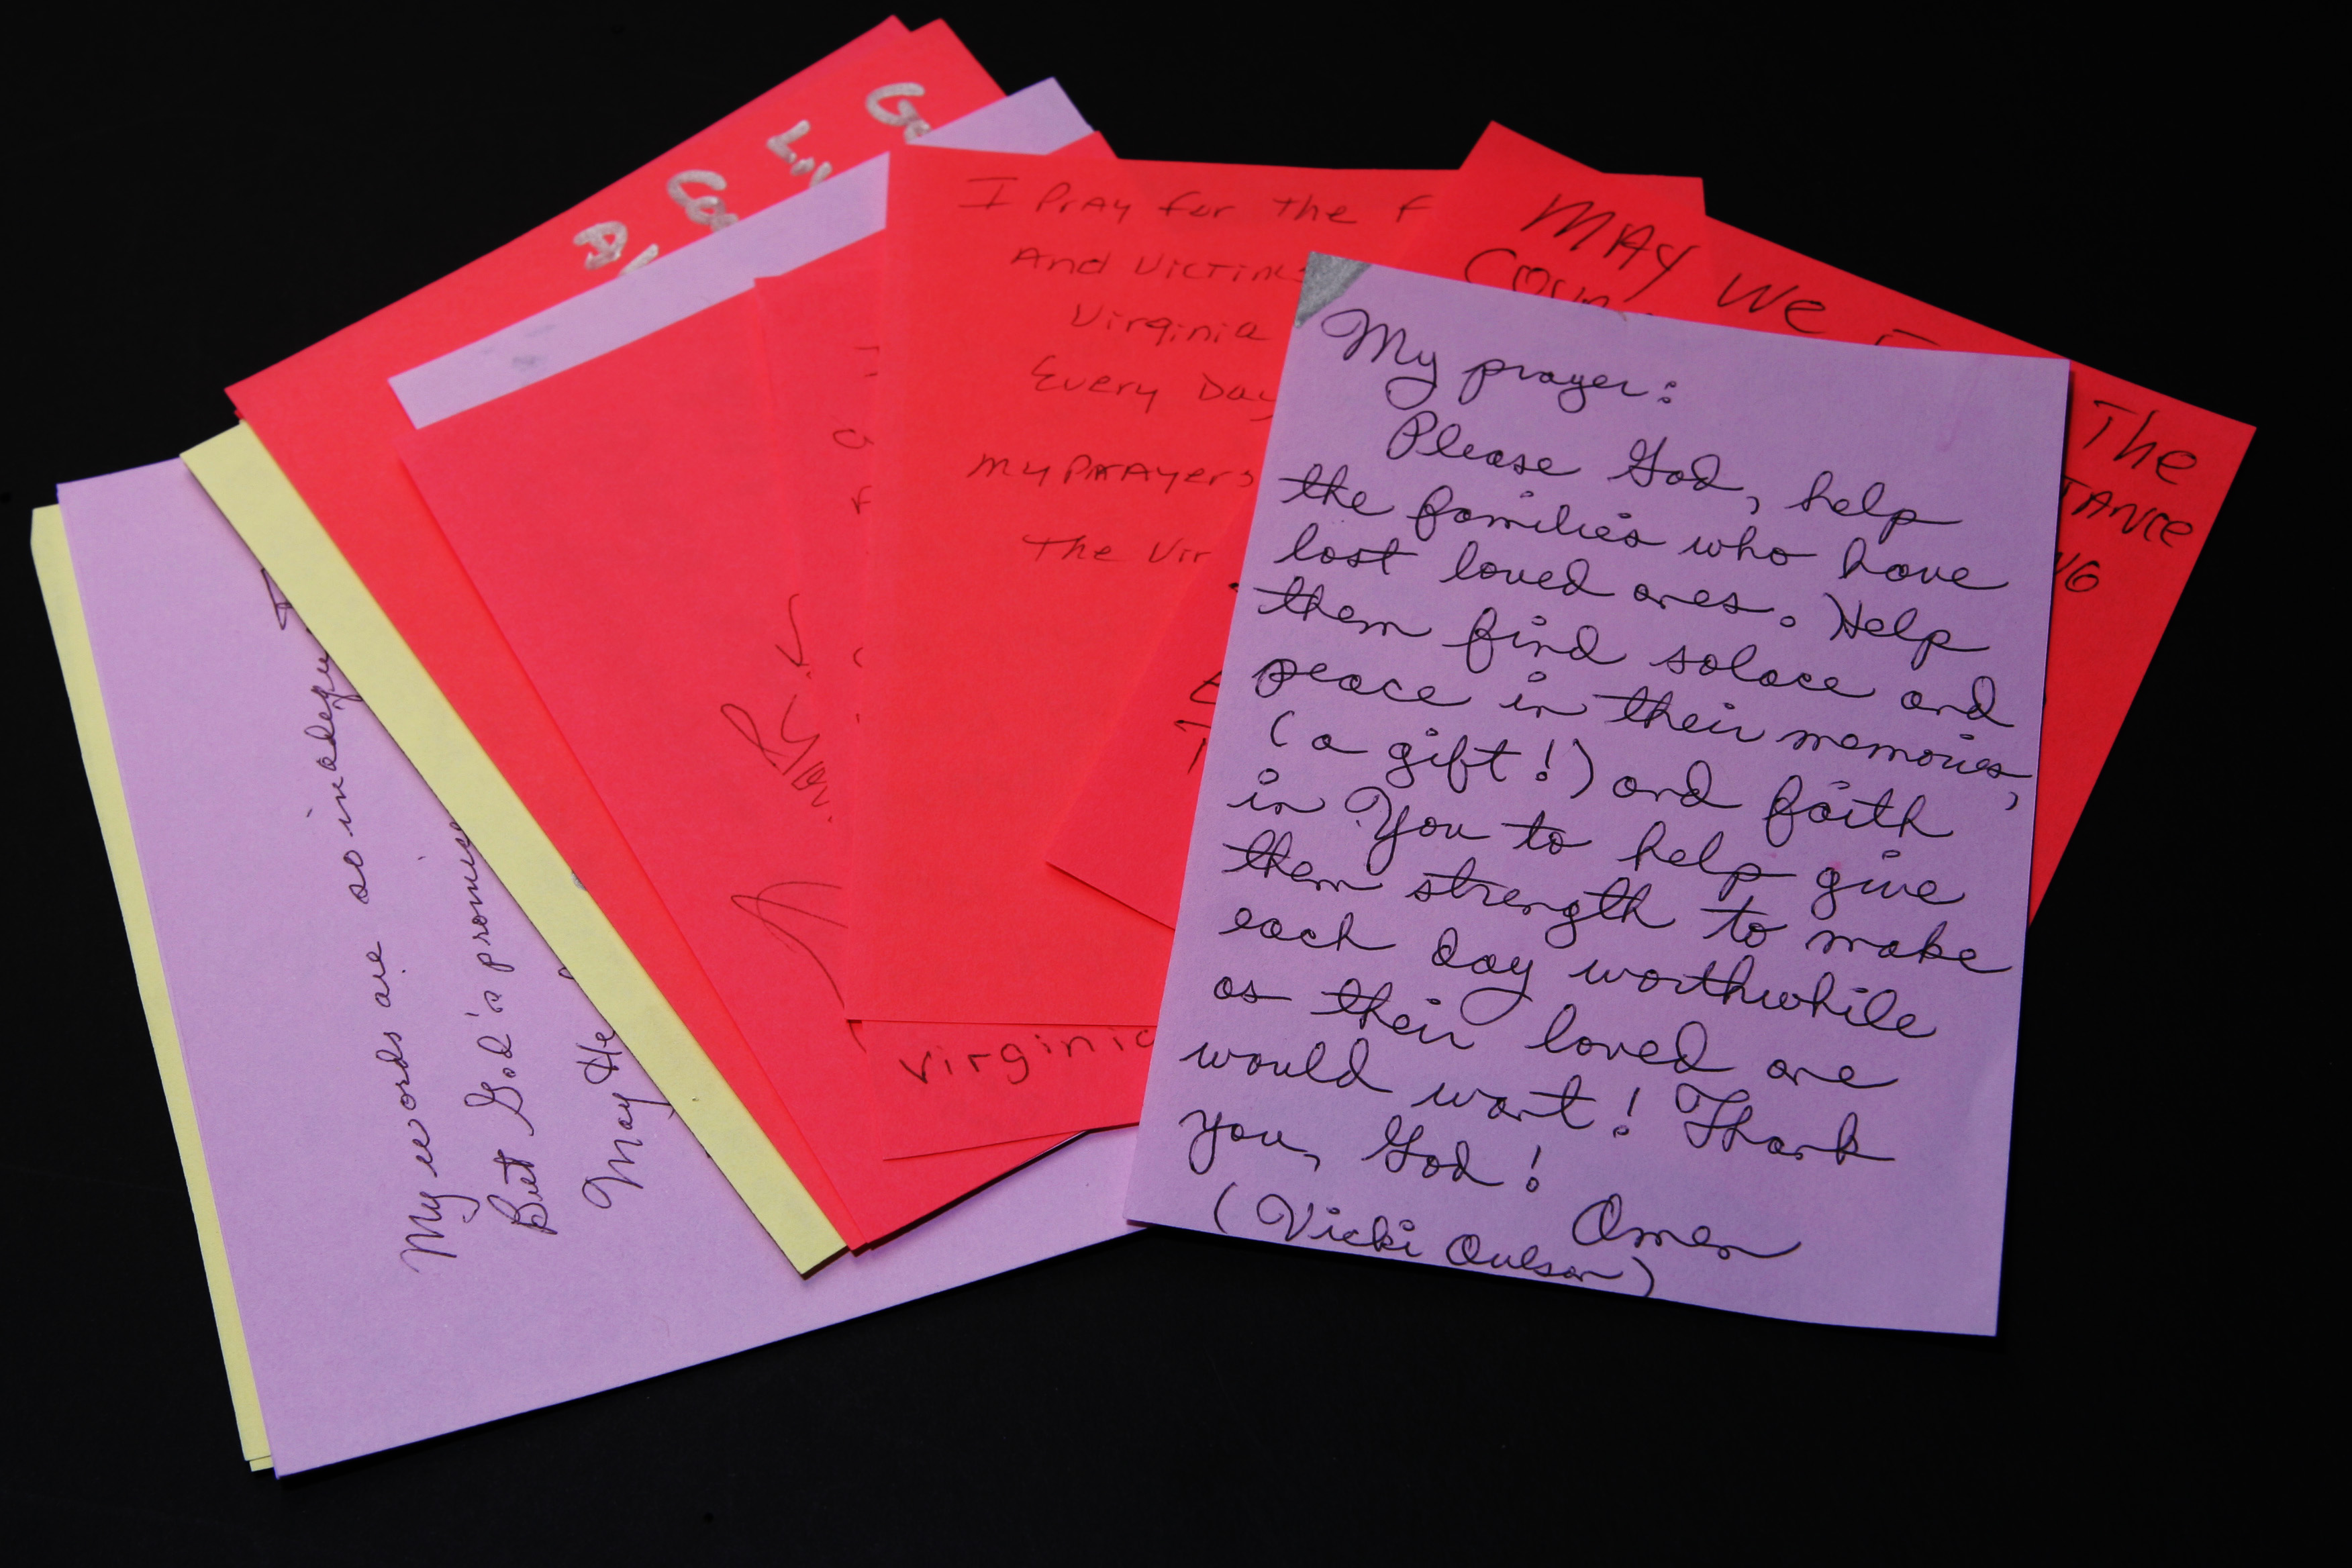 My words are so inadequ
But God's promise
May He
God
Virginia
I PrAy for the F
And Victims
Virginia
Every Day
My PrAyers
The Vir
MAY We
Coun
The
TANCE
NG
My prayer:
Please God, help
the families who have
lost loved ones. Help
them find solace and
peace in their memories,
(a gift!) and faith
in You to help give
them strength to make
each day worthwhile
as their loved one
would want! Thank
you, God!
Amen
(Vicki Oulson)